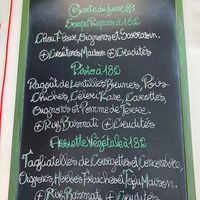 Carte du Jour
Soupe Repas à 15$
Chou Frisé, Oignons et
⊕ Croûtons Maison ⊕ Crudités
à 18$
Ragoût de Lentilles Brunes, Pois
Chiches, Céleri Rave, Carottes,
Oignons et Pomme de Terre.
⊕ Riz Basmati ⊕ Crudités
Assiette Végétale à 18$
Tagliatelles de Courgettes et Concombre,
Oignons, Herbes Fraîches et Tofu Maison.
⊕ Riz Basmati ⊕ Crudités